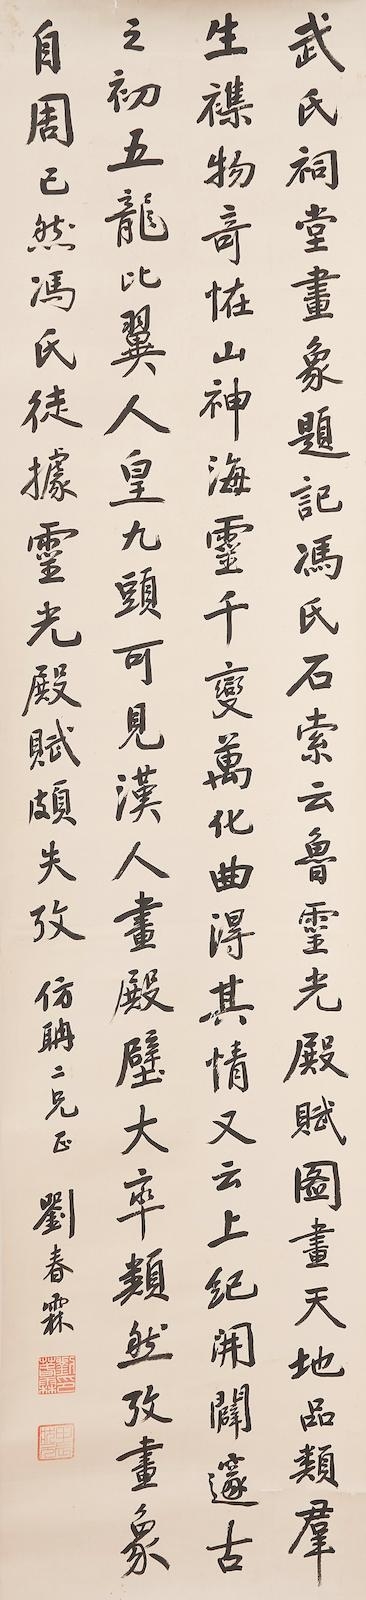 武氏祠堂畫象題記馮氏石索云魯靈光殿賦圖畫天地品類羣
生襍物奇恠山神海靈千變萬化曲得其情又云上紀開闢邃古
之初五龍比翼人皇九頭可見漢人畫殿壁大率類然攷畫象
自周已然馮氏徒據靈光殿賦頗失攷
仿聃二兄正
劉春霖